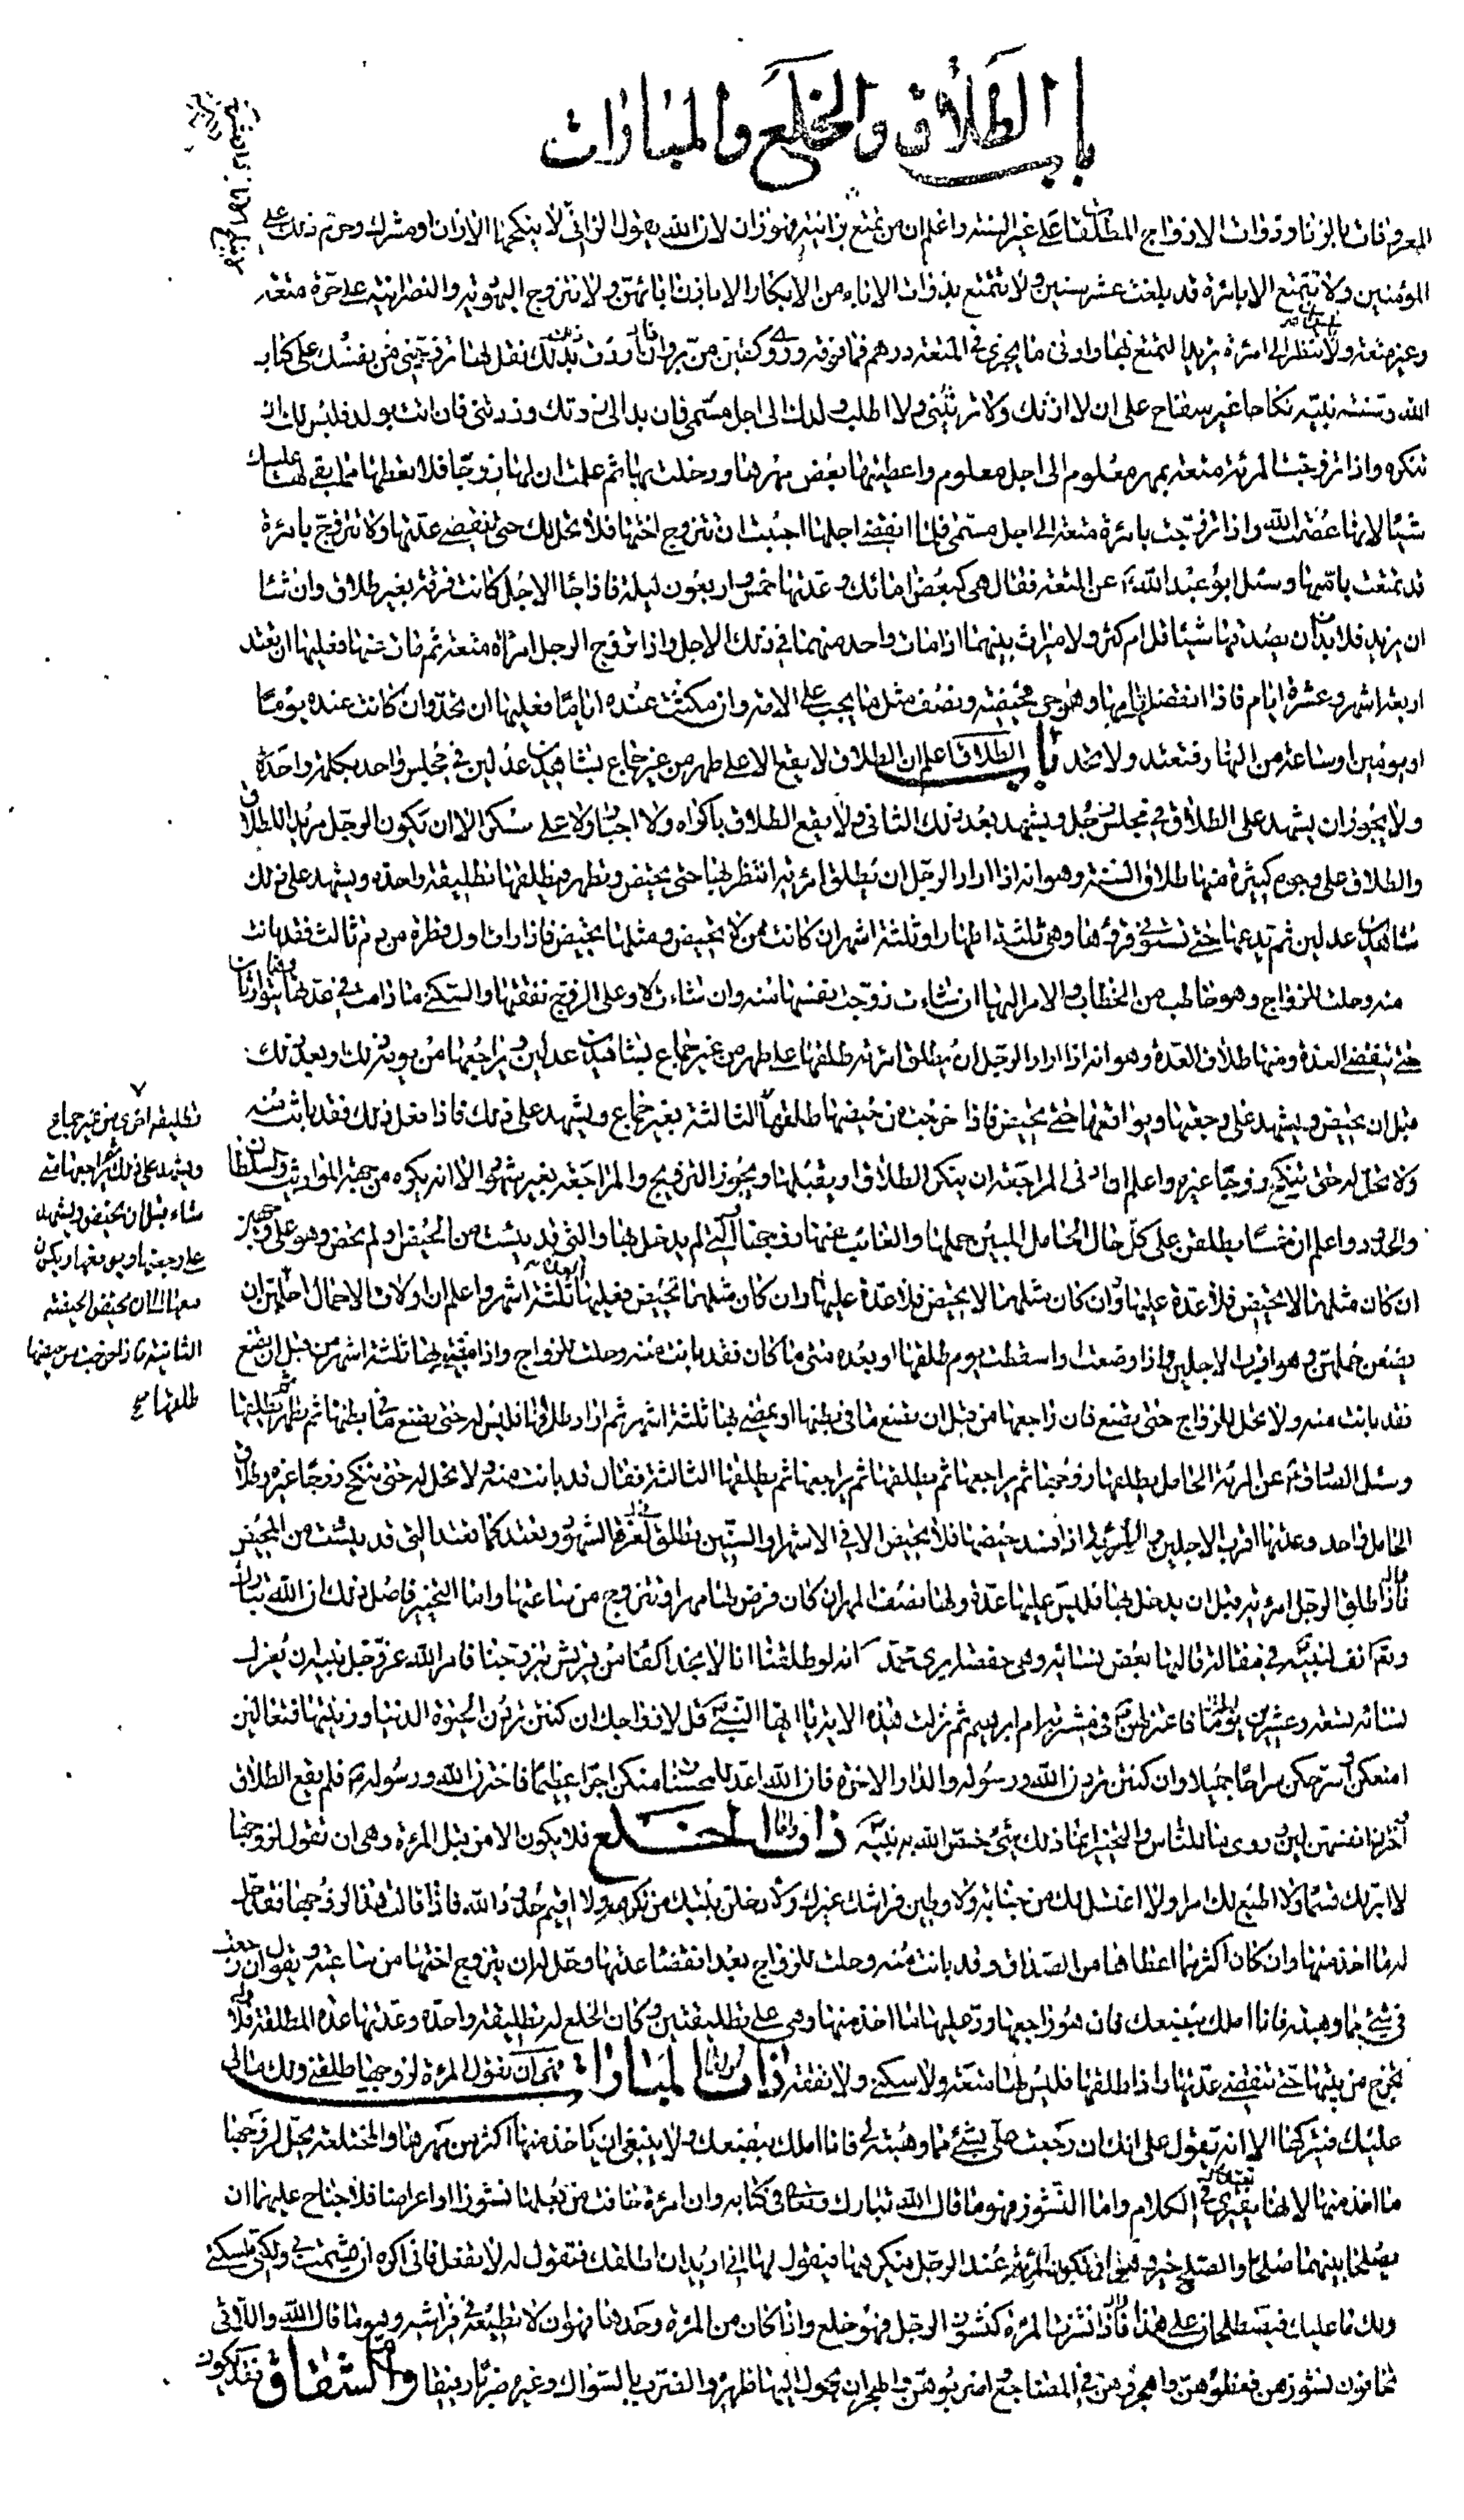 باب الطلاق والخلع والمبارات
المعروفات بالزنا وذوات الازواج المطلقات على غير السنة واعلم ان من تمتع بزانية فهو زان لان الله يقول الزاني لا ينكحها الا زان او مشرك وحرم ذلك على
المؤمنين ولا تتمتع الا بامرأة قد بلغت عشر سنين ولا تتمتع بذوات الاباء من الابكار الا باذن ابائهن ولا تتزوج اليهودية والنصرانية على حرة متعة
وغير متعة ولا تنظر الى امرأة تريد التمتع بها وادنى ما يجزي في المتعة درهم فما فوقه وروي كفين من بر وان اردت ذلك فقل لها تزوجيني من نفسك على كتاب
الله وسنة نبيه نكاحا غير سفاح على ان لا ارثك ولا ترثيني ولا اطلب ولدك الى اجل مسمى فان بدا لي زدتك وزدتني فان اتت بولد فليس لك ان
تنكره واذا تزوجت المرئة متعة بمهر معلوم الى اجل معلوم واعطيتها بعض مهرها ودخلت بها ثم علمت ان لها زوجا فلا تعطها مما بقي لها عليك
شيئا لانها عصت الله واذا تزوجت بامرة متعة الى اجل مسمى فلما انقضى اجلها احببت ان تتزوج اختها فلا تحل لك حتى تنقضي عدتها ولا تتزوج بامرة
قد تمتعت بامها وسئل ابو عبد الله ع عن المتعة فقال هي كبعض امائك وعدتها خمس واربعون ليلة فاذا جاء الاجل كانت فرقة بغير طلاق وان شاء
ان يزيد فلا بد ان يصدقها شيئا قل ام كثر ولا ميراث بينهما اذا مات واحد منهما في ذلك الاجل واذا تزوج الرجل امرأة متعة ثم مات عنها فعليها ان تعتد
اربعة اشهر وعشرة ايام فاذا انقضت ايامها وهو حي فحيضة ونصف مثل ما يجب على الامة وان مكثت عنده اياما فعليها ان تحد وان كانت عنده يوما
او يومين او ساعة من النهار فتعتد ولا تحد باب الطلاق اعلم ان الطلاق لا يقع الا على طهر من غير جماع بشاهدين عدلين في مجلس واحد بكلمة واحدة
ولا يجوز ان يشهد على الطلاق في مجلس رجل ويشهد بعد ذلك الثاني ولا يقع الطلاق باكراه ولا اجبار ولا على سكر الا ان يكون الرجل مريدا للطلاق
والطلاق على وجوه كثيرة منها طلاق السنة وهو انه اذا اراد الرجل ان يطلق امرئته انتظر بها حتى تحيض وتطهر فيطلقها تطليقة واحدة ويشهد على ذلك
شاهدين عدلين ثم يدعها حتى تستوفي قروءها وهي ثلثة اطهار او ثلثة اشهر ان كانت ممن لا تحيض ومثلها تحيض فاذا رات اول قطرة من دم ثالث فقد بانت
منه وحلت للزواج وهو خاطب من الخطاب والامر اليها ان شاءت زوجت نفسها منه وان شاءت لا وعلى الزوج نفقتها والسكنى ما دامت في عدتها وهما يتوارثان
حتى تنقضي العدة ومنها طلاق العدة وهو انه اذا اراد الرجل ان يطلق امرئته طلقها على طهر من غير جماع بشاهدين عدلين ويراجعها من يومه ذلك او بعد ذلك
قبل ان تحيض ويشهد على رجعتها ويواقعها حتى تحيض فاذا خرجت من حيضها طلقها الثالثة بغير جماع ويشهد على ذلك فاذا فعل ذلك فقد بانت منه
ولا تحل له حتى تنكح زوجا غيره واعلم ان ادنى المراجعة ان ينكر الطلاق او يقبلها ويجوز التزويج والمراجعة بغير شهود الا انه يكره من جهة المواريث والسلطان
والحدود واعلم ان خمسا يطلقن على كل حال الحامل المبين حملها والغائب عنها زوجها والتي لم يدخل بها والتي قد يئست من الحيض او لم تحض وهو على وجهين
ان كان مثلها لا تحيض فلا عدة عليها وان كان مثلها تحيض فعليها ثلثة اشهر واعلم ان اولات الاحمال اجلهن ان
يضعن حملهن وهو اقرب الاجلين واذا وضعت او اسقطت يوم طلقها او بعده متى ما كان فقد بانت منه وحلت للزواج واذا مضى بها ثلثة اشهر من قبل ان تضع
فقد بانت منه ولا تحل للزواج حتى تضع فان راجعها من قبل ان تضع ما في بطنها او يمضي بها ثلثة اشهر ثم اراد طلاقها فليس له حتى تضع ما في بطنها ثم تطهر ثم يطلقها
وسئل الصادق ع عن المرئة الحامل يطلقها زوجها ثم يراجعها ثم يطلقها ثم يراجعها ثم يطلقها الثالثة فقال قد بانت منه ولا تحل له حتى تنكح زوجا غيره وطلاق
الحامل واحد وعدتها اقرب الاجلين و المرئة اذا فسد حيضها فلا تحيض الا في الاشهر او السنين تطلق لغرة الشهور وتعتد كما تعتد التي قد يئست من المحيض
فاذا طلق الرجل امرئته قبل ان يدخل بها فليس عليها عدة ولها نصف المهر ان كان فرض لها مهرا وتتزوج من ساعتها واما التخيير فاصل ذلك ان الله تبارك
وتع انف لنبيه في مقالة قالتها بعض نسائه وهي حفصة ايرى محمد انه لو طلقنا انا لا نجد اكفائنا من قريش يتزوجنا فامر الله عز وجل نبيه ان يعزل
نسائه تسعة وعشرين يوما فاعتزلهن في مشربة ام ابرهيم ثم نزلت هذه الاية يا ايها النبي قل لازواجك ان كنتن تردن الحيوة الدنيا وزينتها فتعالين
امتعكن واسرحكن سراحا جميلا وان كنتن تردن الله ورسوله والدار الاخرة فان الله اعد للمحسنات منكن اجرا عظيما فاخترن الله ورسوله فلم يقع الطلاق
فلا يكون الا من قبل المرئة وهي ان تقول لزوجها
لا ابر لك قسما ولا اطيع لك امرا ولا اغتسل لك من جنابة ولاوطين فراشك غيرك ولادخلن بيتك من تكرهه ولا اقيم حدود الله فاذا قالت هذا لزوجها فقد حل
له ما اخذ منها وان كان اكثر مما اعطاها من الصداق وقد بانت منه وحلت للزواج بعد انقضاء عدتها وحل له ان يتزوج اختها من ساعته ويقول ان رجعت
في شيء مما وهبته فانا املك ببضعك فان هو راجعها رد عليها ما اخذ منها وهي على تطليقتين وكان الخلع له تطليقة واحدة وعدتها عدة المطلقة ولا
تخرج من بيتها حتى تنقضي عدتها واذا طلقها فليس لها متعة ولا سكنى ولا نفقة باب المبارات فهي ان تقول المرئة لزوجها طلقني ولك ما لي
عليك فيتركها الا انه يقول على انك ان رجعت على بشيء مما وهبته لي فانا املك ببضعك ولا ينبغي ان ياخذ منها اكثر من مهرها والمختلعة يحل لزوجها
ما اخذ منها لانها تعتدي في الكلام واما النشوز فهو ما قال الله تبارك وتعالى في كتابه وان امرئة خافت من بعلها نشوزا او اعراضا فلا جناح عليهما ان
يصلحا بينهما صلحا والصلح خير وهو ان تكون المرئة عند الرجل فيكرهها فيقول لها اني اريد ان اطلقك فتقول له لا تفعل فاني اكره ان يشمت بي
ولك ما عليك فيصطلحان على هذا فاذا نشزت المرئة كنشوز الرجل فهو خلع واذا كان من المرئة وحدها فهو ان لا تطيعه في فراشه وهو ما قال الله واللاتي
تخافون نشوزهن فعظوهن واهجروهن في المضاجع واضربوهن والهجران يحول اليها ظهره والضرب بالسواك وغيره ضربا رفيقا واما الشقاق فقد يكون
تطليقة اخرى من غير جماع
ويشهد على ذلك ثم يراجعها متى
شاء قبل ان تحيض ويشهد
على رجعتها ويواقعها ويكون
معها الى ان تحيض الحيضة
الثانية فاذا خرجت من حيضها
طلقها صح